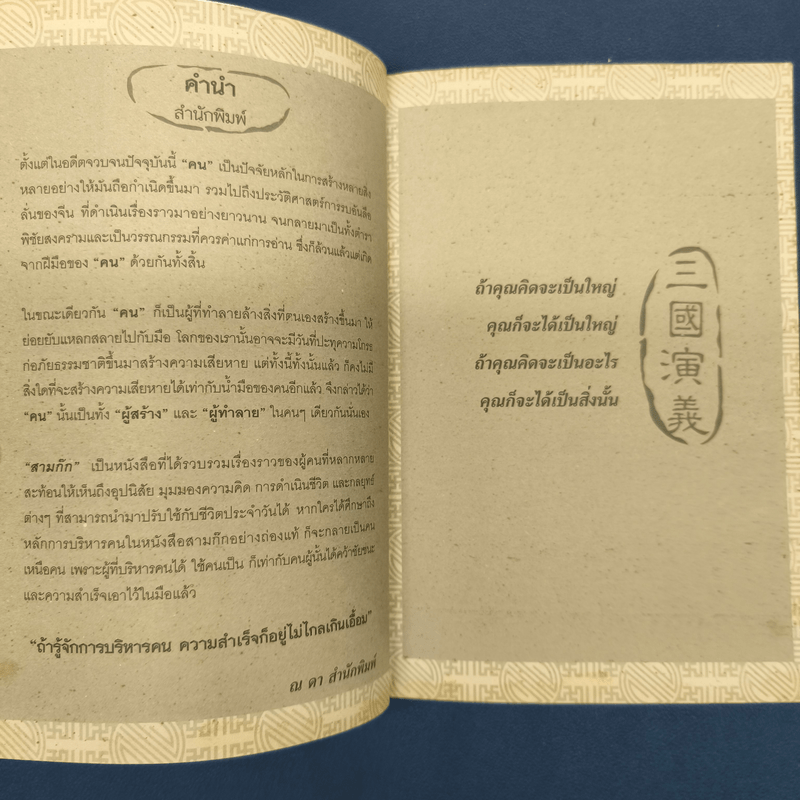 คำนำ
สำนักพิมพ์
ตั้งแต่ในอดีตจวบจนปัจจุบันนี้ "คน" เป็นปัจจัยหลักในการสร้างหลายสิ่ง
หลายอย่างให้มันถือกำเนิดขึ้นมา รวมไปถึงประวัติศาสตร์การรบอันลือ
ลั่นของจีน ที่ดำเนินเรื่องราวมาอย่างยาวนาน จนกลายมาเป็นทั้งตำรา
พิชัยสงครามและเป็นวรรณกรรมที่ควรค่าแก่การอ่าน ซึ่งก็ล้วนแล้วแต่เกิด
จากฝีมือของ "คน" ด้วยกันทั้งสิ้น
ในขณะเดียวกัน "คน" ก็เป็นผู้ที่ทำลายล้างสิ่งที่ตนเองสร้างขึ้นมา ให้
ย่อยยับแหลกสลายไปกับมือ โลกของเรานั้นอาจจะมีวันที่ปะทุความโกรธ
ก่อภัยธรรมชาติขึ้นมาสร้างความเสียหาย แต่ทั้งนี้ทั้งนั้นแล้ว ก็คงไม่มี
สิ่งใดที่จะสร้างความเสียหายได้เท่ากับน้ำมือของคนอีกแล้ว จึงกล่าวได้ว่า
"คน" นั้นเป็นทั้ง "ผู้สร้าง" และ "ผู้ทำลาย" ในคนๆ เดียวกันนั่นเอง
"สามก๊ก" เป็นหนังสือที่ได้รวบรวมเรื่องราวของผู้คนที่หลากหลาย
สะท้อนให้เห็นถึงอุปนิสัย มุมมองความคิด การดำเนินชีวิต และกลยุทธ์
ต่างๆ ที่สามารถนำมาปรับใช้กับชีวิตประจำวันได้ หากใครได้ศึกษาถึง
หลักการบริหารคนในหนังสือสามก๊กอย่างถ่องแท้ ก็จะกลายเป็นคน
เหนือคน เพราะผู้ที่บริหารคนได้ ใช้คนเป็น ก็เท่ากับคนผู้นั้นได้คว้าชัยชนะ
และความสำเร็จเอาไว้ในมือแล้ว
"ถ้ารู้จักการบริหารคน ความสำเร็จก็อยู่ไม่ไกลเกินเอื้อม"
ณ ดา สำนักพิมพ์
ถ้าคุณคิดจะเป็นใหญ่
คุณก็จะได้เป็นใหญ่
ถ้าคุณคิดจะเป็นอะไร
คุณก็จะได้เป็นสิ่งนั้น
三國演義